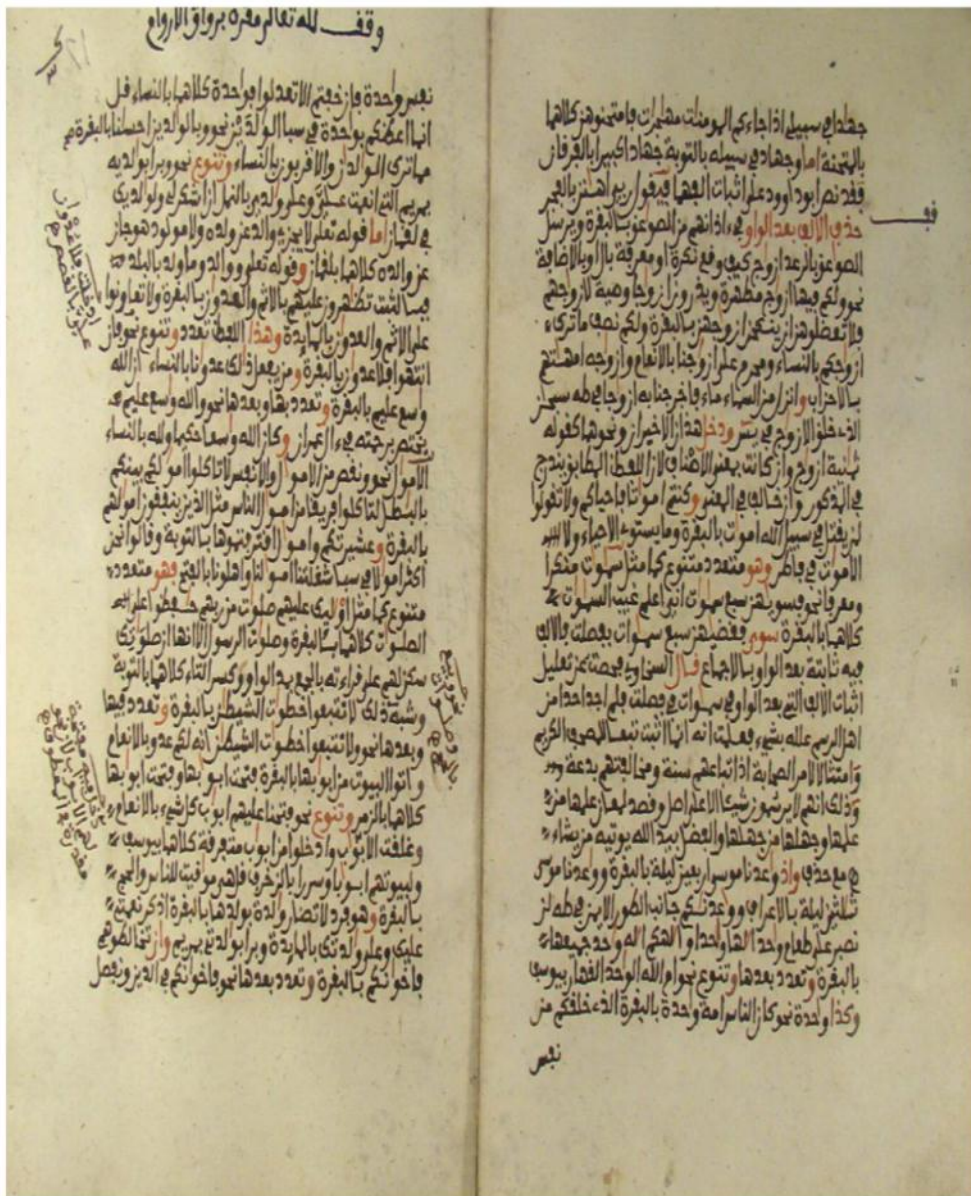 جهدا في سبيلي اذا جاءكم المومنات مهجرات فامتحنوهن كلاهما
بالممتحنة اما وجهاد في سبيله بالتوبة جهادا كبيرا بالفرقان
فقد نص ابو داوود على اثبات الفهما
حذف الالف بعد الواو في اذانهم من الصوعق بالبقرة ويرسل
الصوعق بالرعد ازوج كيف وقع نكرة او معرفة بال او بالاضافة
نحو ولكم فيها ازوج مطهرة ويذرون ازوجا وصية لازوجهم
فلا تعضلوهن ان ينكحن ازوجهن بالبقرة ولكم نصف ما ترك
ازوجكم بالنساء ومحرم على ازوجنا بالانعام وازوجه امهتهم
بالاحزاب وانزل من السماء ماء فاخرجنا به ازوجا في طه سبحن
الذي خلق الازوج في يس ودخل هذان الاخيران ونحوهما كقوله
ثمنية ازوج وان كانت بمعنى الاصناف لان اللفظ المطابق يندرج
في المذكور وان خالف في المعنى وكنتم اموتا فاحيكم ولا تقولوا
لمن يقتل في سبيل الله اموت بالبقرة وما يستوي الاحياء ولا
الاموت في فاطر وهو متعدد متنوع كما مثل سموت منكرا
ومعرفا نحو فسويهن سبع سموت اني اعلم غيب السموت
كلاهما بالبقرة سوى فقضيهن سبع سموات بفصلت فالالف
فيه ثابتة بعد الواو بالاجماع قال السخاوي فحصت عن تعليل
اثبات الالف التي بعد الواو في سموات في فصلت فلم اجد احدا من
اهل الرسم علله بشيء فعلمت انه انما اثبت تبعا للمصحف الكريم
وامتثالا لامر الصحابة اذ اتباعهم سنة ومخالفتهم بدعة
وذلك انهم لا يرسمون شيئا الا على اصل وقصد لمعان علمها من
علمها وجهلها من جهلها والفضل بيد الله يوتيه من يشاء
مع حذف واذ وعدنا موسى اربعين ليلة بالبقرة ووعدنا موسى
ثلثين ليلة بالاعراف ووعدنكم جانب الطور الايمن في طه لن
نصبر على طعام وحد الها وحدا والهكم اله وحد جميعها
بالبقرة وتعدد بعدها وتنوع نحو ام الله الوحد القهار بيوسف
وكذا وحدة نحو كان الناس امة وحدة بالبقرة الذي خلقكم من
نفس
قف
وقف لله تعالى مقره برواق الاروام
نفس وحدة فان خفتم الا تعدلوا فوحدة كلاهما بالنساء قل
انما اعظكم بوحدة في سبا الولدين نحو وبالولدين احسنا بالبقرة
مما ترك الولدان والاقربون بالنساء وتنوع نحو وبرا بولديه
بمريم التي انعمت علي وعلى ولدي بالنمل ان اشكر لي ولولديك
في لقمان اما قوله تعلى لا يجزي والد عن ولده ولا مولود هو جاز
عن والده كلاهما بلقمان وقوله تعلى ووالد وما ولد بالبلد
فبالثبت تظهرون عليهم بالاثم والعدون بالبقرة ولا تعاونوا
على الاثم والعدون بالمايدة وهذا اللفظ تعدد وتنوع نحو فان
انتهوا فلا عدون بالبقرة ومن يفعل ذلك عدونا بالنساء ان الله
وسع عليم بالبقرة وتعدد بها وبعدها نحو والله وسع عليم
يختص برحمته في ال عمران وكان الله وسعا حكيما ولله بالنساء
الامول نحو ونقص من الامول والانفس لا تاكلوا امولكم بينكم
بالبطل لتاكلوا فريقا من امول الناس مثل الذين ينفقون امولهم
بالبقرة وعشيرتكم وامول اقترفتموها بالتوبة وقالوا نحن
اكثر امولا في سبا شغلتنا امولنا واهلونا بالفتح فهو متعدد
متنوع كما مثل اوليك عليهم صلوت من ربهم حفظوا على
الصلوت كلاهما بالبقرة وصلوت الرسول الا انها ان صلوتك
سكن لهم على قراءته بالجمع بمد الواو وكسر التاء كلاهما بالتوبة
وشبه ذلك لا تتبعوا خطوت الشيطن بالبقرة وتعدد فيها
وبعدها نحو ولا تتبعوا خطوت الشيطن انه لكم عدو بالانعام
واتوا البيوت من ابوبها بالبقرة فتحت ابوبها وفتحت ابوبها
كلاهما بالزمر وتنوع نحو فتحنا عليهم ابوب كل شيء بالانعام
وغلقت الابوب وادخلوا من ابوب متفرقة كلاهما بيوسف
ولبيوتهم ابوبا وسررا بالزخرف قل هي موقيت للناس والحج
بالبقرة وهو فرد لا تضار ولدة بولدها بالبقرة اذكر نعمتي
عليك وعلى ولدتك بالمايدة وبرا بولدتي بمريم وان تخالطوهم
فاخونكم بالبقرة وتعدد بعدها نحو فاخونكم في الدين ونفصل